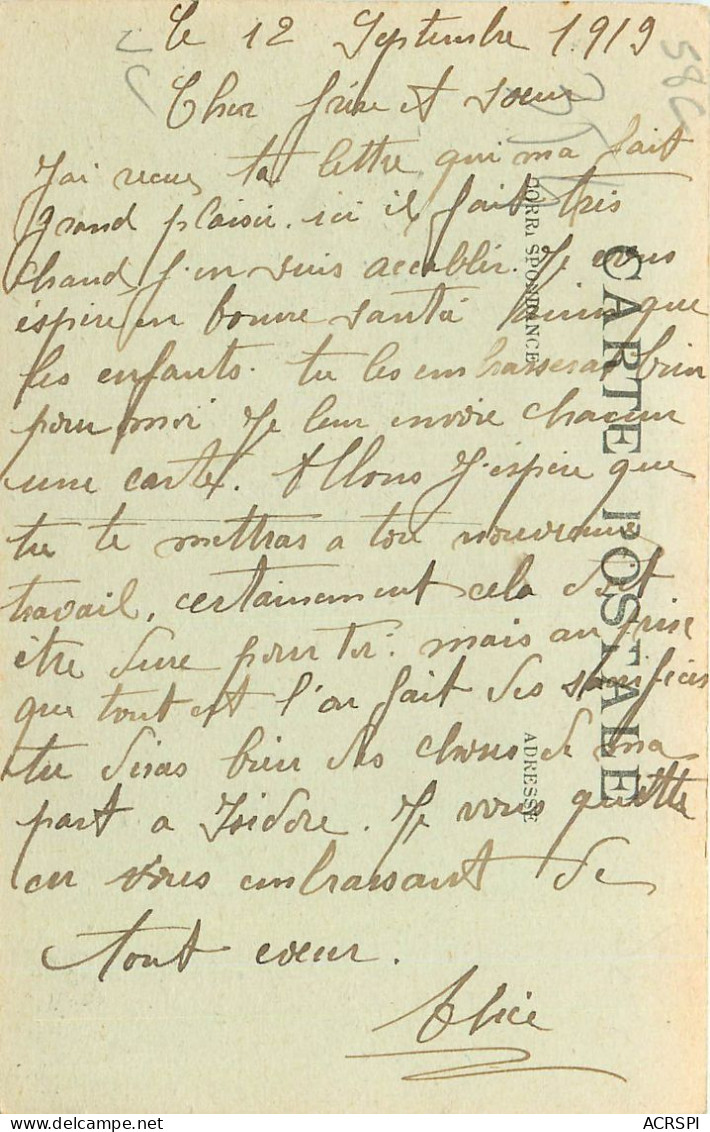 Le 12 Septembre 1919
Cher frère et soeur
J'ai recue ta lettre qui ma fait
grand plaisir. ici il fait très
chaud j'en suis accablir. Je vous
éspère en bonne santé ainsi que
les enfants. tu les embrasseras bien
pour moi Je leur envoie chacun
une carte. Allons J'espère que
tu te mettras a ton nouveau
travail, certainement cela doit
être dure pour toi. mais au prix
que tout est l'on fait des sacrifices
tu diras bien des choses de ma
part a Isidore. Je vous quitte
en vous embrassant de
tout coeur.
Alice
CARTE POSTALE
CORRESPONDANCE
ADRESSE
ACRSPI